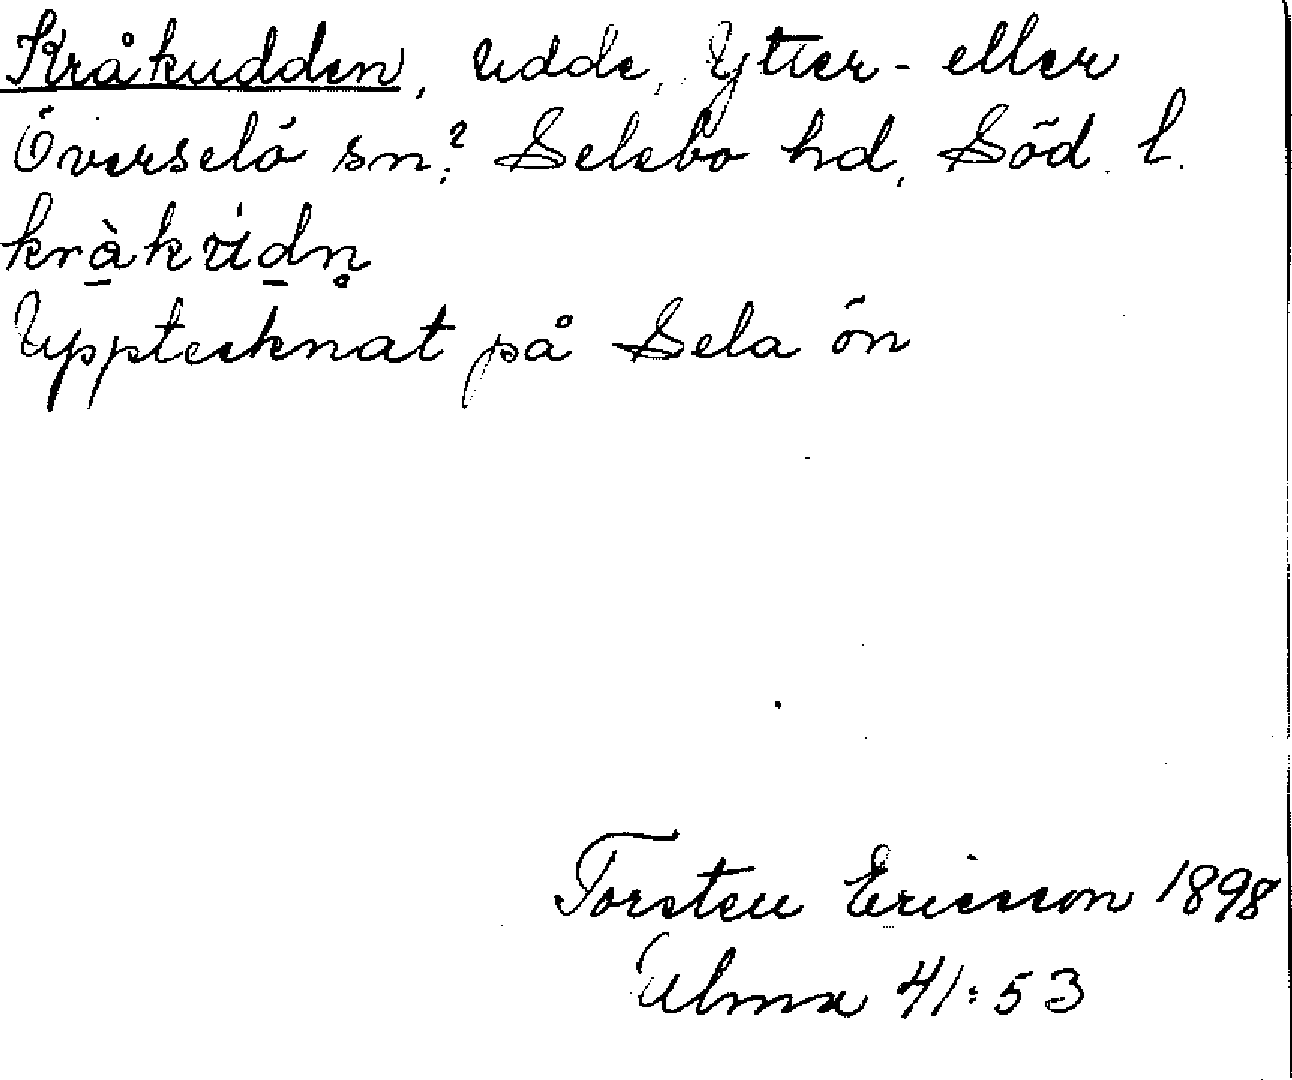 Kråkudden, udde, Ytter- eller
Överselö sn.? Selebo hd, Söd. l.
Upptecknat på Sela ön
Torsten Ericsson 1898
Ulma 41:53